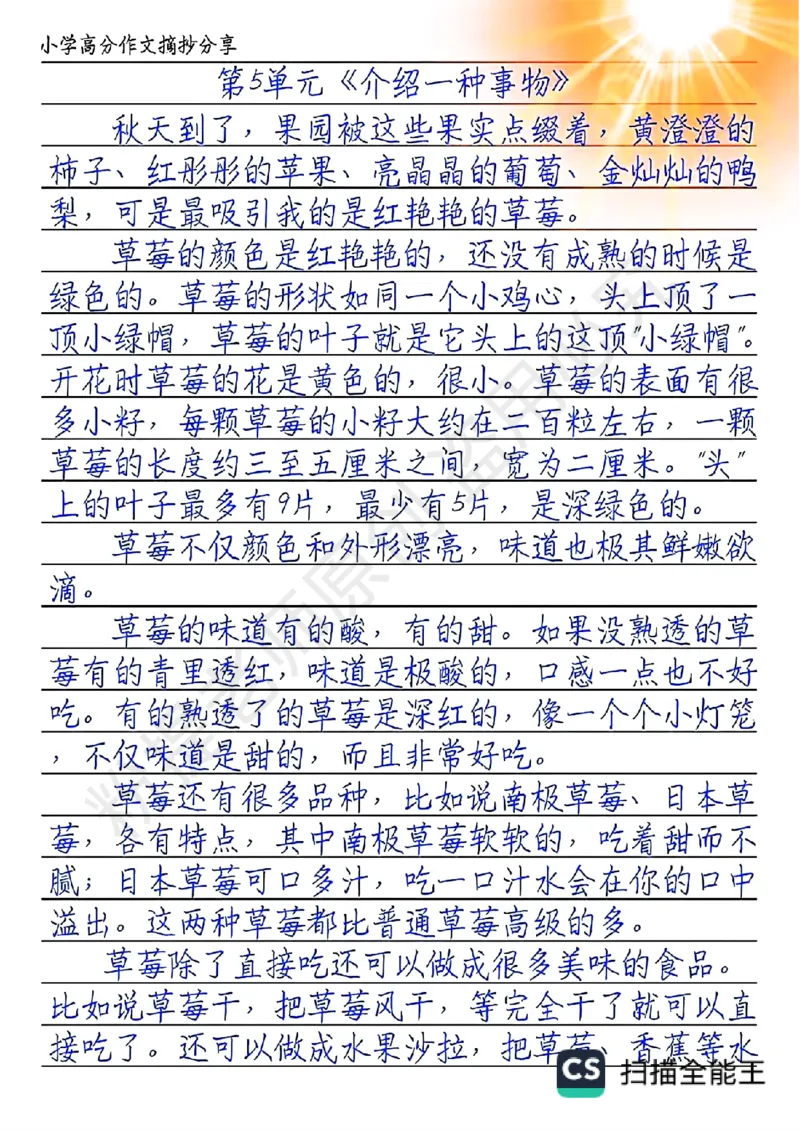 小学高分作文摘抄分享
第5单元《介绍一种事物》
秋天到了，果园被这些果实点缀着，黄澄澄的
柿子、红彤彤的苹果、亮晶晶的葡萄、金灿灿的鸭
梨，可是最吸引我的是红艳艳的草莓。
草莓的颜色是红艳艳的，还没有成熟的时候是
绿色的。草莓的形状如同一个小鸡心，头上顶了一
顶小绿帽，草莓的叶子就是它头上的这顶"小绿帽"。
开花时草莓的花是黄色的，很小。草莓的表面有很
多小籽，每颗草莓的小籽大约在二百粒左右，一颗
草莓的长度约三至五厘米之间，宽为二厘米。"头"
上的叶子最多有9片，最少有5片，是深绿色的。
草莓不仅颜色和外形漂亮，味道也极其鲜嫩欲
滴。
草莓的味道有的酸，有的甜。如果没熟透的草
莓有的青里透红，味道是极酸的，口感一点也不好
吃。有的熟透了的草莓是深红的，像一个个小灯笼
，不仅味道是甜的，而且非常好吃。
草莓还有很多品种，比如说南极草莓、日本草
莓，各有特点，其中南极草莓软软的，吃着甜而不
腻；日本草莓可口多汁，吃一口汁水会在你的口中
溢出。这两种草莓都比普通草莓高级的多。
草莓除了直接吃还可以做成很多美味的食品。
比如说草莓干，把草莓风干，等完全干了就可以直
接吃了。还可以做成水果沙拉，把草莓、香蕉等水
CS 扫描全能王